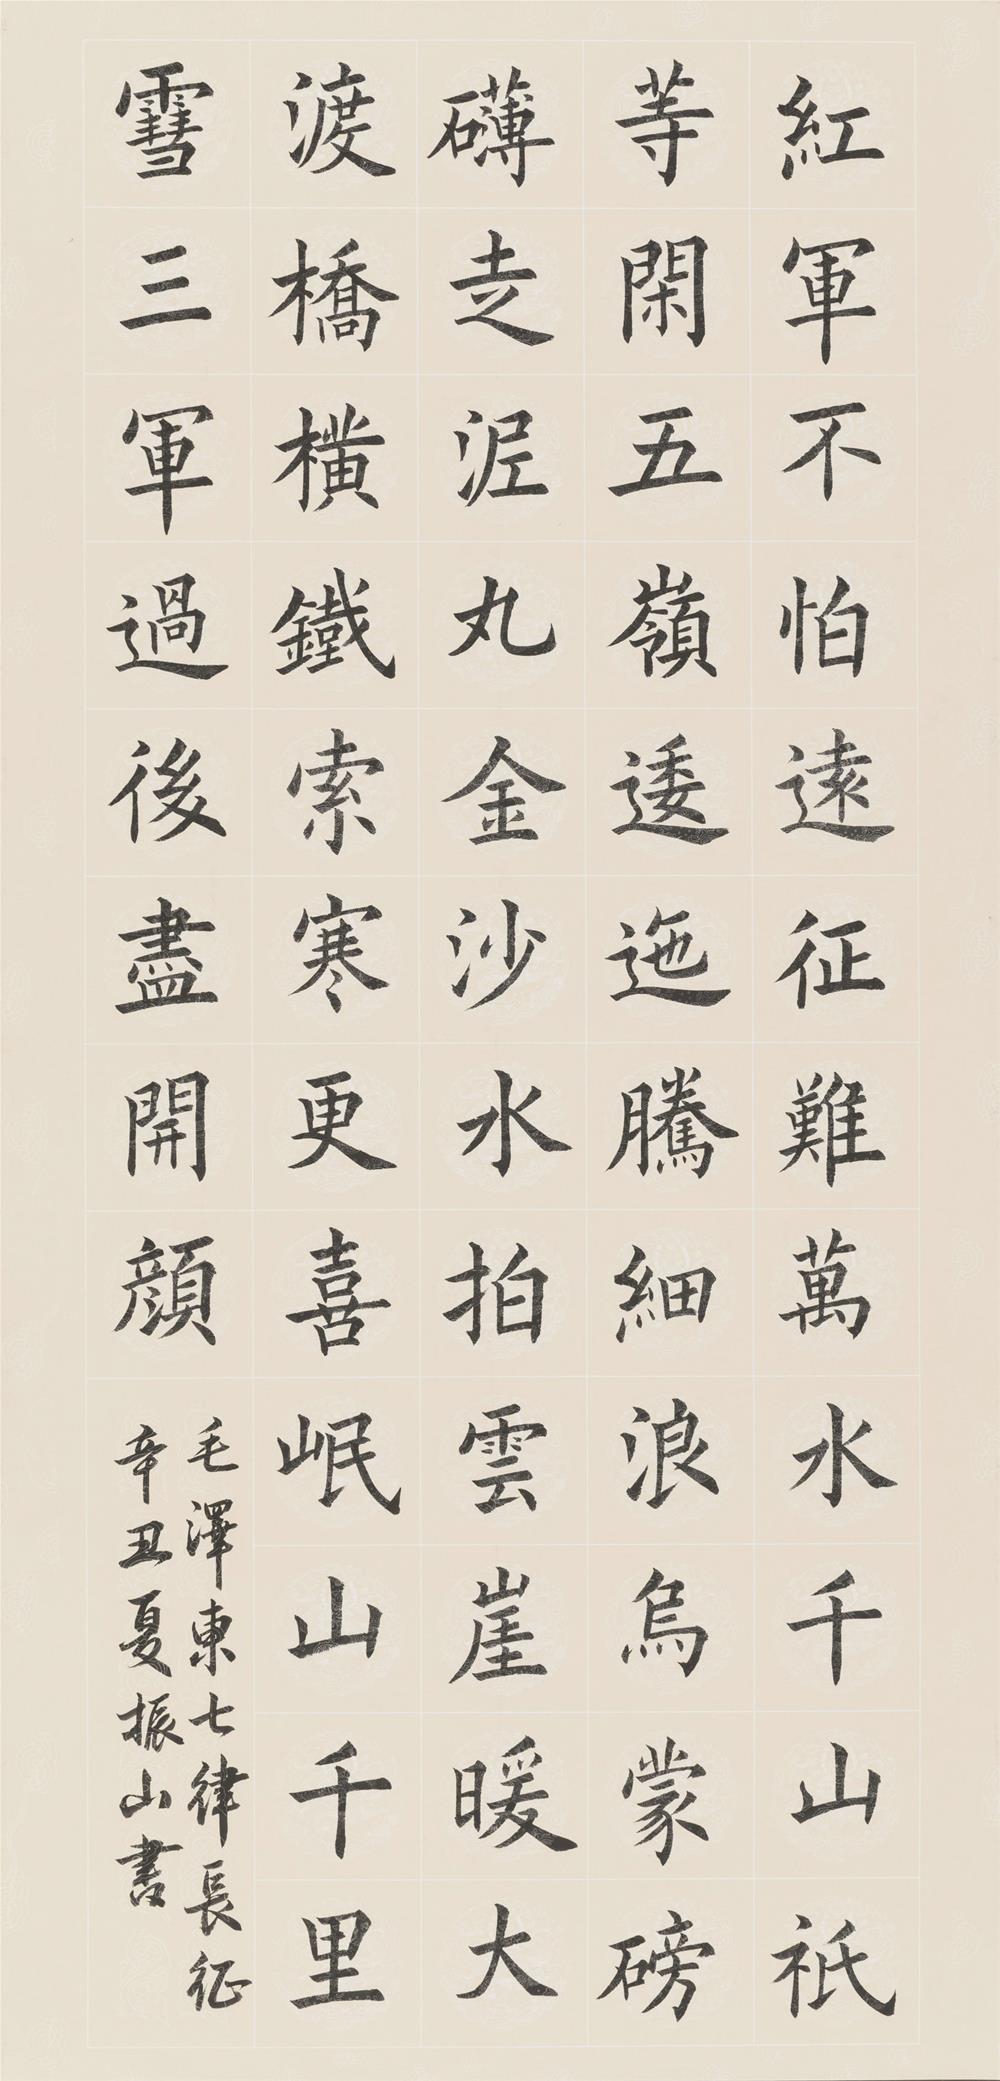 紅軍不怕遠征難萬水千山祇
等閑五嶺逶迤騰細浪烏蒙磅
礴走泥丸金沙水拍雲崖暖大
渡橋橫鐵索寒更喜岷山千里
雪三軍過後盡開顏
毛澤東七律長征
辛丑夏振山書